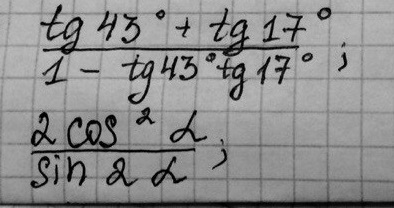 tg 43° + tg 17°
1 - tg43°tg17° ;
2 cos² α
sin 2 α ;